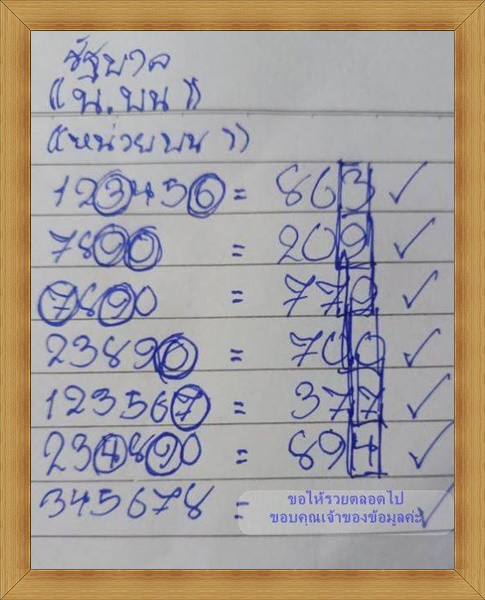 รัฐบาล
((น.บน))
((หน่วยบน))
123456 = 863 ✓
7890 = 209 ✓
7890 = 779 ✓
23890 = 700 ✓
123567 = 377 ✓
234890 = 894 ✓
345678 = ✓
ขอให้รวยตลอดไป
ขอบคุณเจ้าของข้อมูลค่ะ